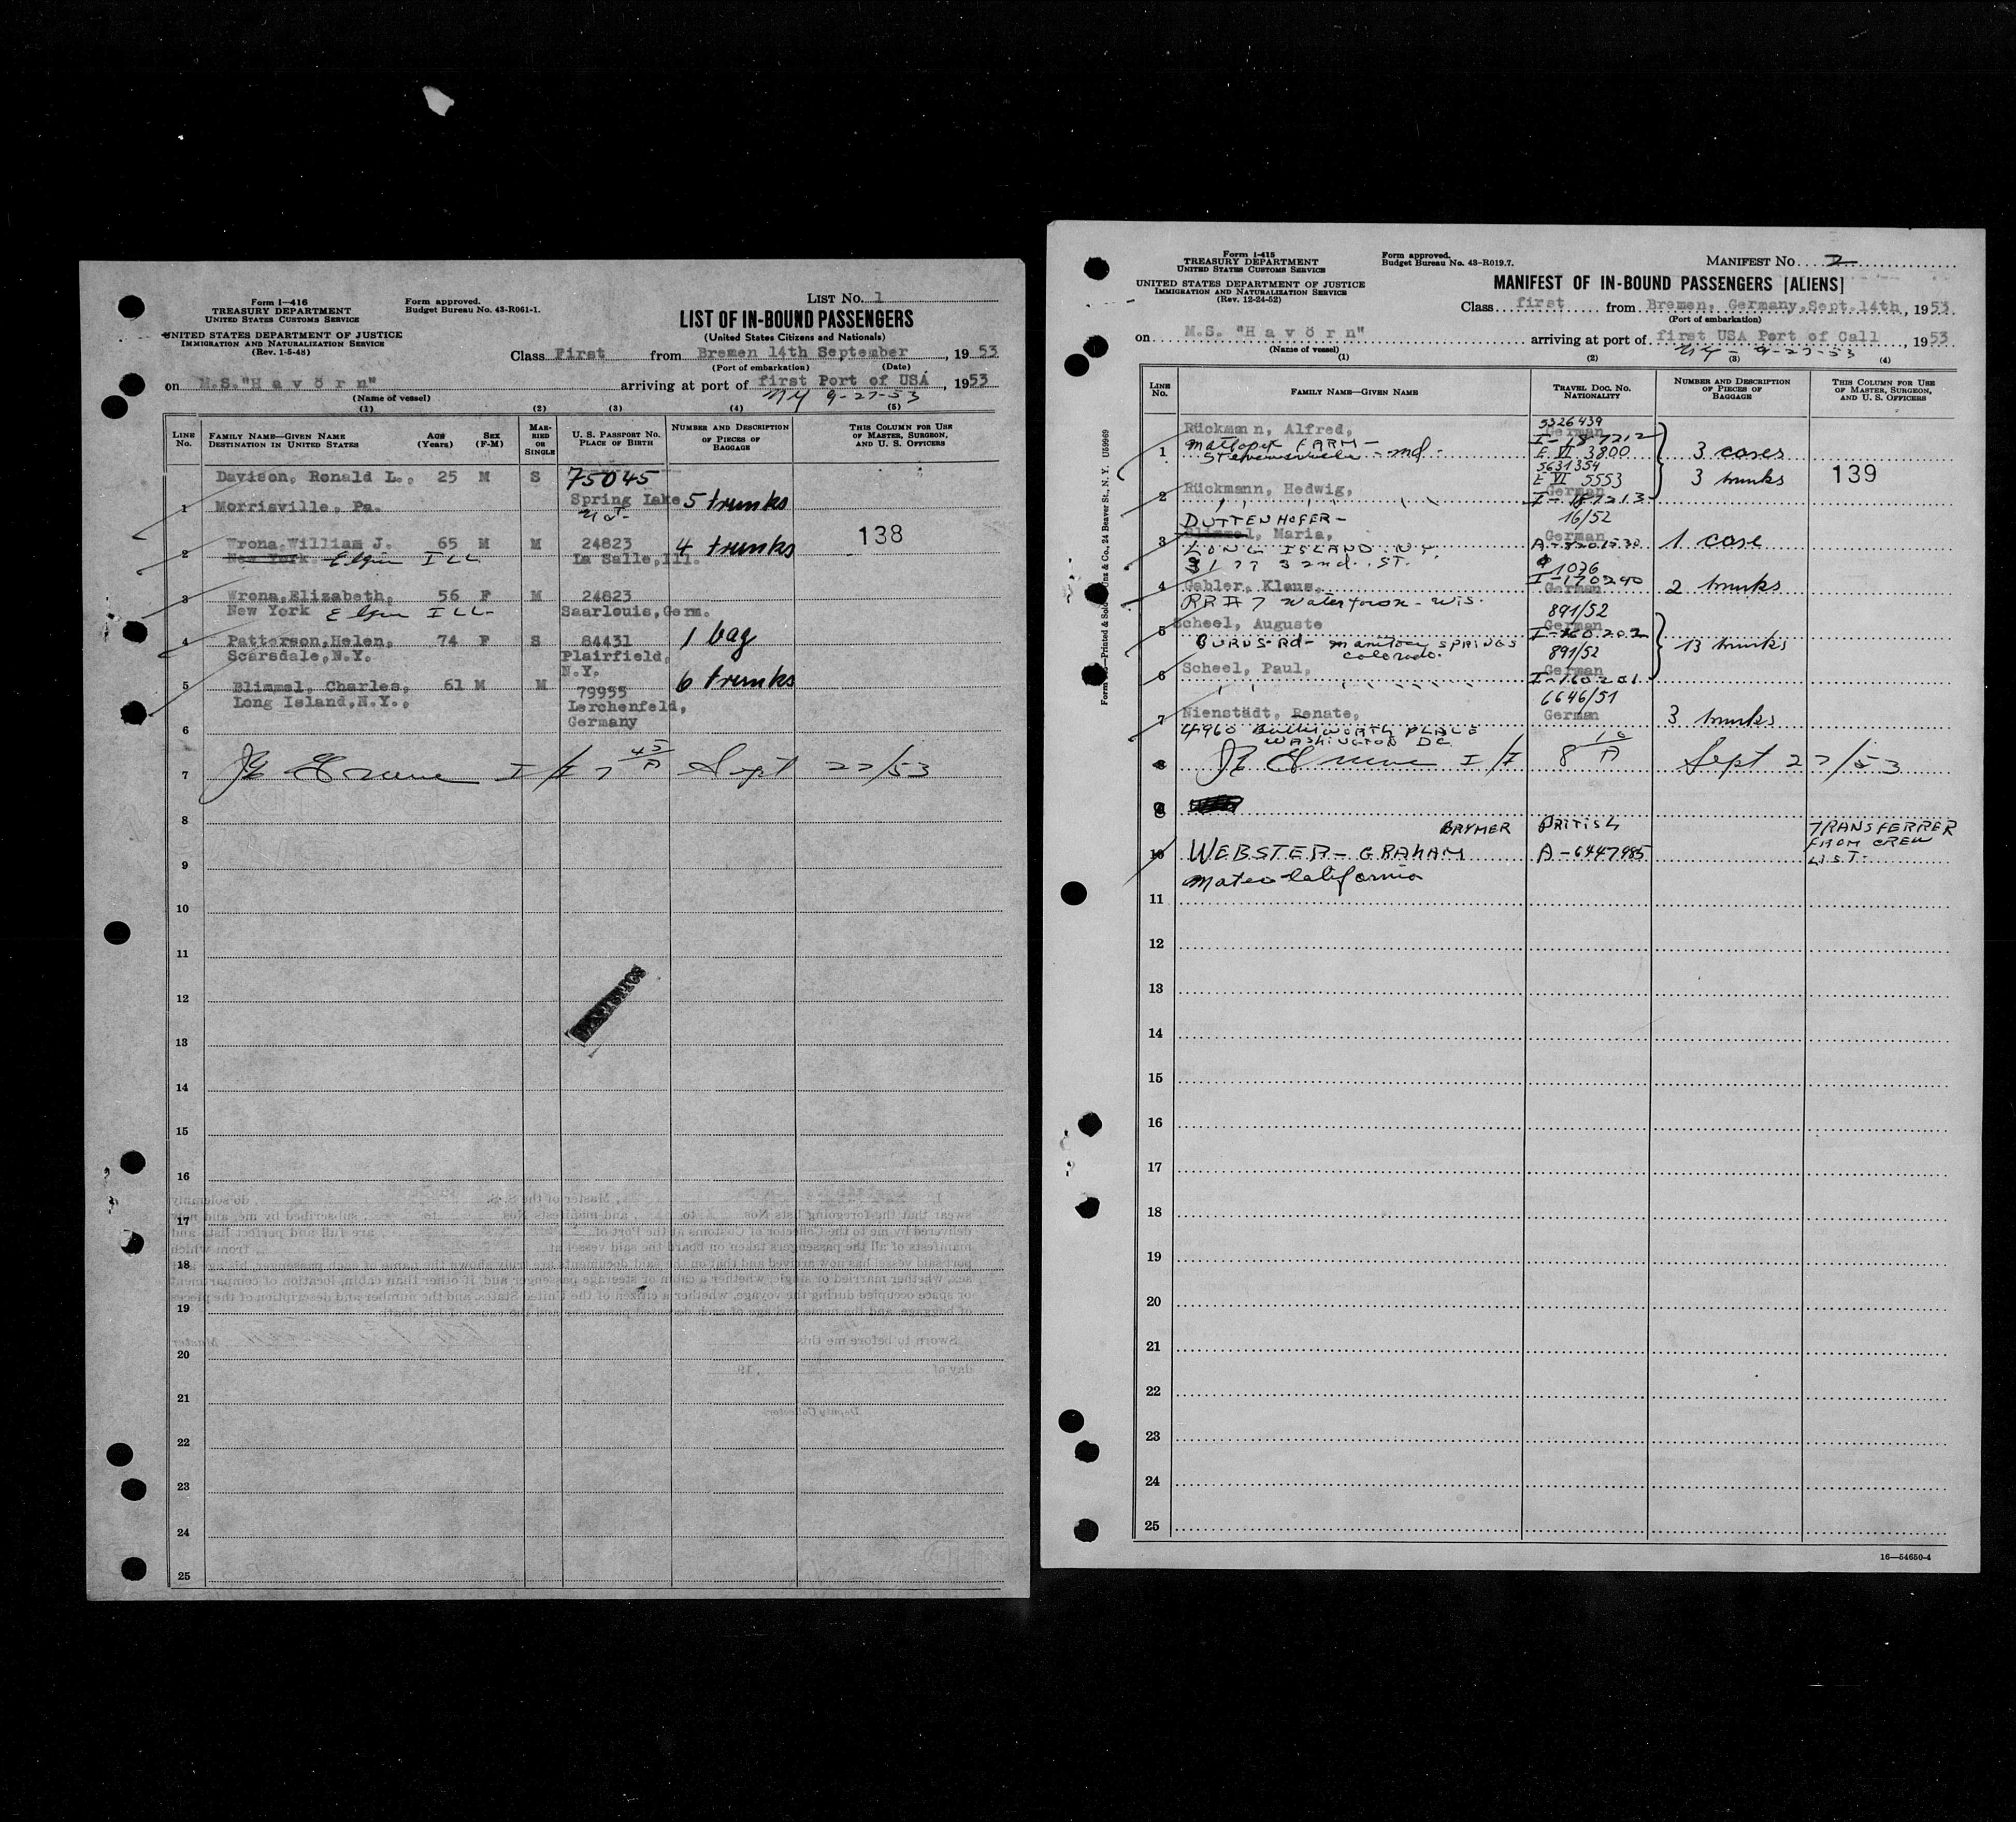 Form I—416
TREASURY DEPARTMENT
UNITED STATES CUSTOMS SERVICE
UNITED STATES DEPARTMENT OF JUSTICE
IMMIGRATION AND NATURALIZATION SERVICE
(Rev. 1-5-48)
Form approved.
Budget Bureau No. 43-R061-1.
LIST No. 1
LIST OF IN-BOUND PASSENGERS
(United States Citizens and Nationals)
Class First from Bremen 14th September, 1953
(Port of embarkation) (Date)
on M.S."H a v ö r n" arriving at port of first Port of USA, 1953
(Name of vessel) NY 9-27-53
(1) (2) (3) (4) (5)
LINE No. FAMILY NAME—GIVEN NAME DESTINATION IN UNITED STATES AGE (Years) SEX (F-M) MARRIED OR SINGLE U. S. PASSPORT No. PLACE OF BIRTH NUMBER AND DESCRIPTION OF PIECES OF BAGGAGE THIS COLUMN FOR USE OF MASTER, SURGEON, AND U. S. OFFICERS
Davison, Ronald L., 25 M S 75045
1 Morrisville, Pa. Spring Lake 5 trunks
138
2 Wrona,William J. 65 M M 24823 4 trunks
New York. Elgin ILL La Salle,Ill.
3 Wrona,Elizabeth, 56 F M 24823
New York Elgin ILL- Saarlouis,Germ.
4 Patterson,Helen, 74 F S 84431 1 bag
Scarsdale,N.Y. Plairfield,
N.Y.
5 Blimmel, Charles, 61 M M 79955 6 trunks
Long Island,N.Y., Lerchenfeld,
Germany
6
7 I/I 7 45/A Sept 27/53
8
9
10
11
12
13
14
15
16
17
18
19
20
21
22
23
24
25
Form I-415
TREASURY DEPARTMENT
UNITED STATES CUSTOMS SERVICE
UNITED STATES DEPARTMENT OF JUSTICE
IMMIGRATION AND NATURALIZATION SERVICE
(Rev. 12-24-52)
Form approved.
Budget Bureau No. 43-R019.7.
MANIFEST No. 2
MANIFEST OF IN-BOUND PASSENGERS [ALIENS]
Class first from Bremen, Germany,Sept.14th, 1953
(Port of embarkation)
on M.S. "H a v ö r n" arriving at port of first USA Port of Call, 1953
(Name of vessel) NY - 9-27-53
(1) (2) (3) (4)
LINE No. FAMILY NAME—GIVEN NAME TRAVEL DOC. NO. NATIONALITY NUMBER AND DESCRIPTION OF PIECES OF BAGGAGE THIS COLUMN FOR USE OF MASTER, SURGEON, AND U. S. OFFICERS
5326439
Rückmann, Alfred, German
I-187212
1 FARM - md. E VI 3800 3 cases
5631354
E VI 5553 3 trunks 139
2 Rückmann, Hedwig, German
I-187213
DUTTENHOFER- 16/52
3 Blimmel, Maria, German 1 case
LONG ISLAND. N.Y.
32nd. ST. 1076
4 Gebler, Klaus, I-170240 German 2 trunks
RR # 7 - Wis. 891/52
5 Scheel, Auguste German
BURNS-Rd- Manitou SPRINGS I-160202 13 trunks
Colorado. 891/52
6 Scheel, Paul, German
I-160201
6646/51
7 Nienstädt, Renate, German 3 trunks
4960 PLACE
WASHINGTON DC
8 I/I 8 10/A Sept 27/53
9
BRYMER BRITISH TRANSFERRER
10 WEBSTER - GRAHAM A-6447985 FROM CREW
LIST-
Mateo California
11
12
13
14
15
16
17
18
19
20
21
22
23
24
25
16—54650-4